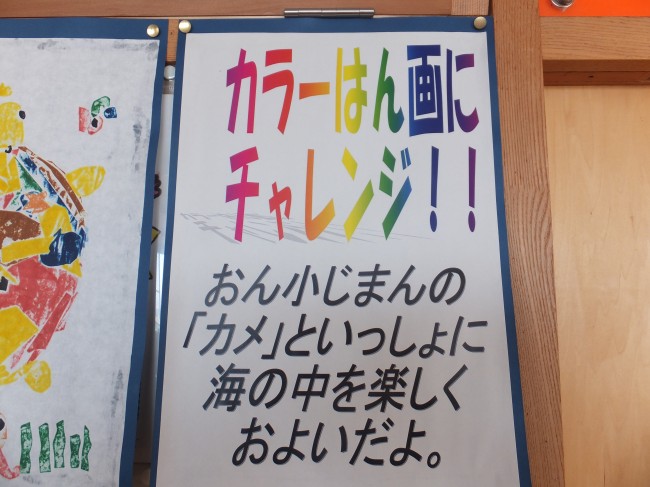 カラーはん画に
チャレンジ！！
おん小じまんの
「カメ」といっしょに
海の中を楽しく
およいだよ。